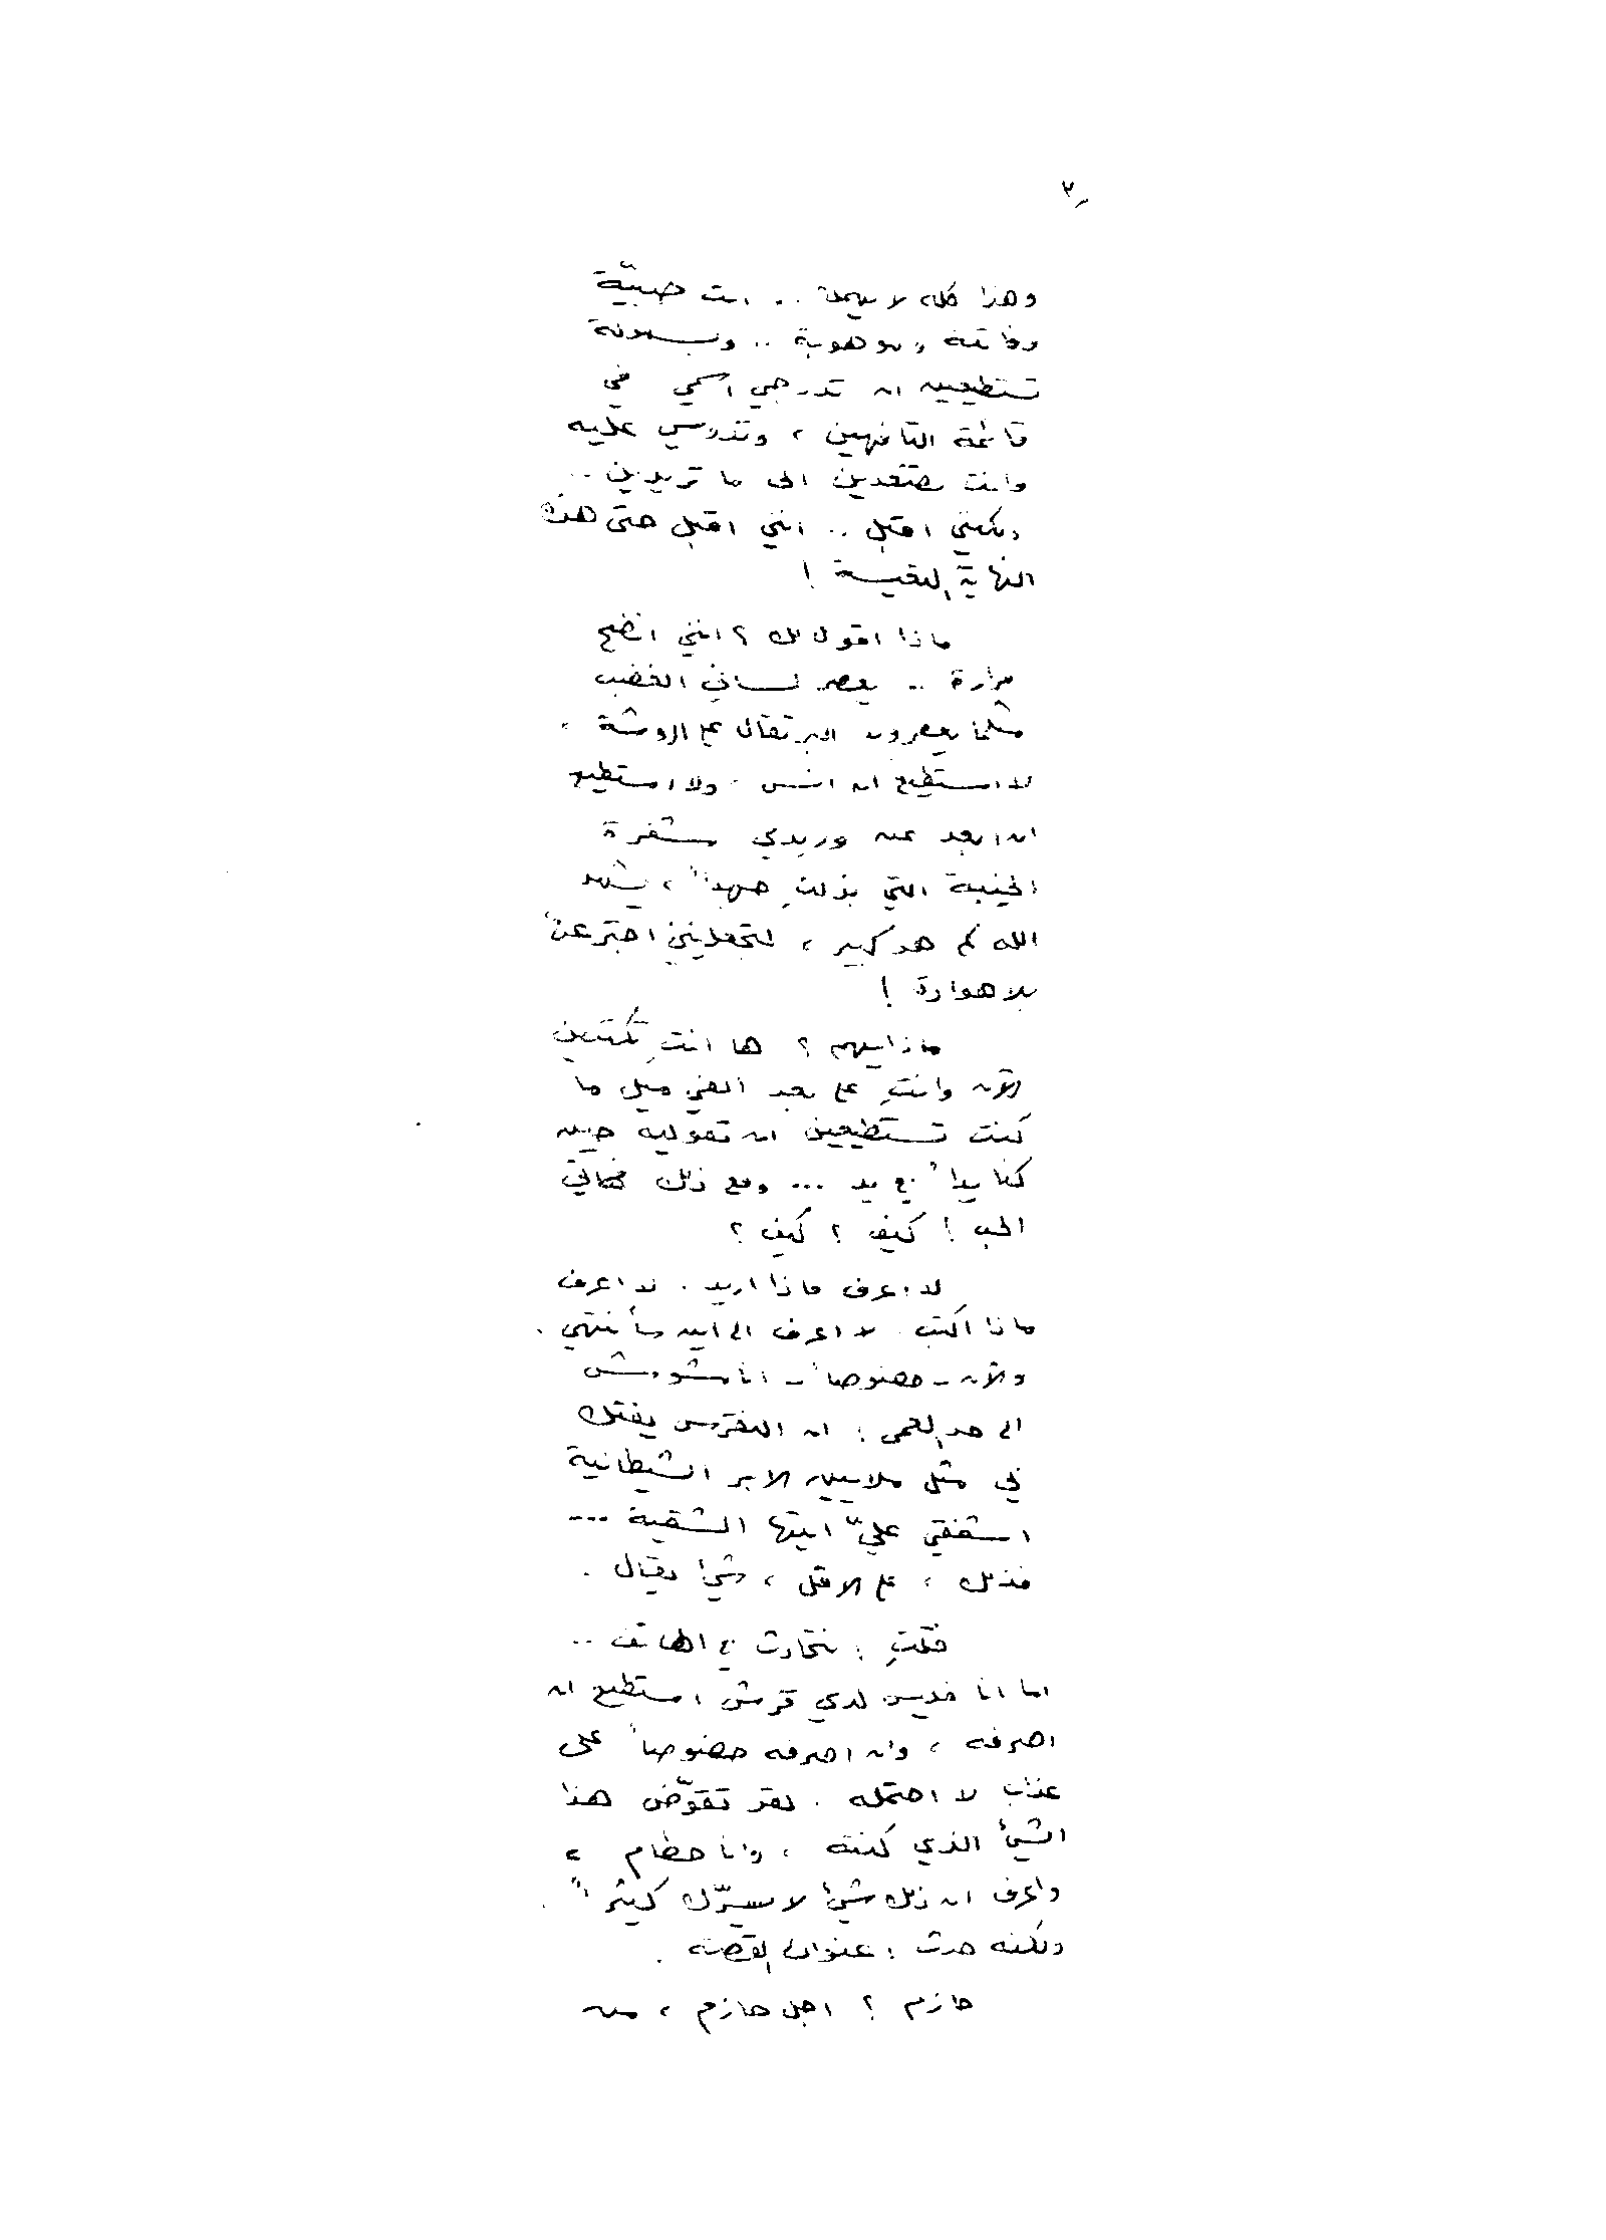 ٣ـ
وهذا كله لا يهمك .. انت صبيّة
وفاتنة وموهوبة .. وبسهولة
تستطيعين ان تدرجي اسمي في
قائمة التافهين ، وتدوسي عليه
وانت تصعدين الى ما تريدين ..
ولكنني اقبل .. انني اقبل حتى هذه
النهاية التعيسة !
ماذا اقول لك ؟ انني انضح
مرارة .. يعصر لساني الغضب
مثلما يعصرون البرتقال على الروشة ،
لا استطيع ان انسى . ولا استطيع
ان ابعد عن وريدي شفرة
الخيبة التي بذلتِ جهداً ، يشهد
الله كم هو كبير ، لتجعلينني اجترعها
بلا هوادة !
ماذا يهم ؟ ها انتِ تكتبين
الآن وانتِ على بعد الفي ميل ما
كنت تستطيعين ان تقوليه حين
كنا يداً بيد ... ومع ذلك فخالتي
الحب ! كيف ؟ كيف ؟
لا اعرف ماذا اريد . لا اعرف
ماذا اكتب . لا اعرف الى اين سأنتهي .
والآن - خصوصاً - انا مشوش
الى حد العمى : ان النقرس يفتك
بي مثل ملايين الابر الشيطانية
اشفقي عليّ ايتها الشقية ...
فذلك ، على الاقل ، شيء يقال .
قلتِ : نتحادث في الهاتف ..
اما انا فليس لدي قرش استطيع ان
اصرفه ، وان اصرفه خصوصاً على
عذاب لا احتمله . لقد تقوّض هذا
الشيء الذي كنته ، وانا حطام ،
واعرف ان ذلك شيء لا يسرّك كثيراً .
ولكنه حدث : عنوان القصة .
حازم ؟ اجل حازم ، من